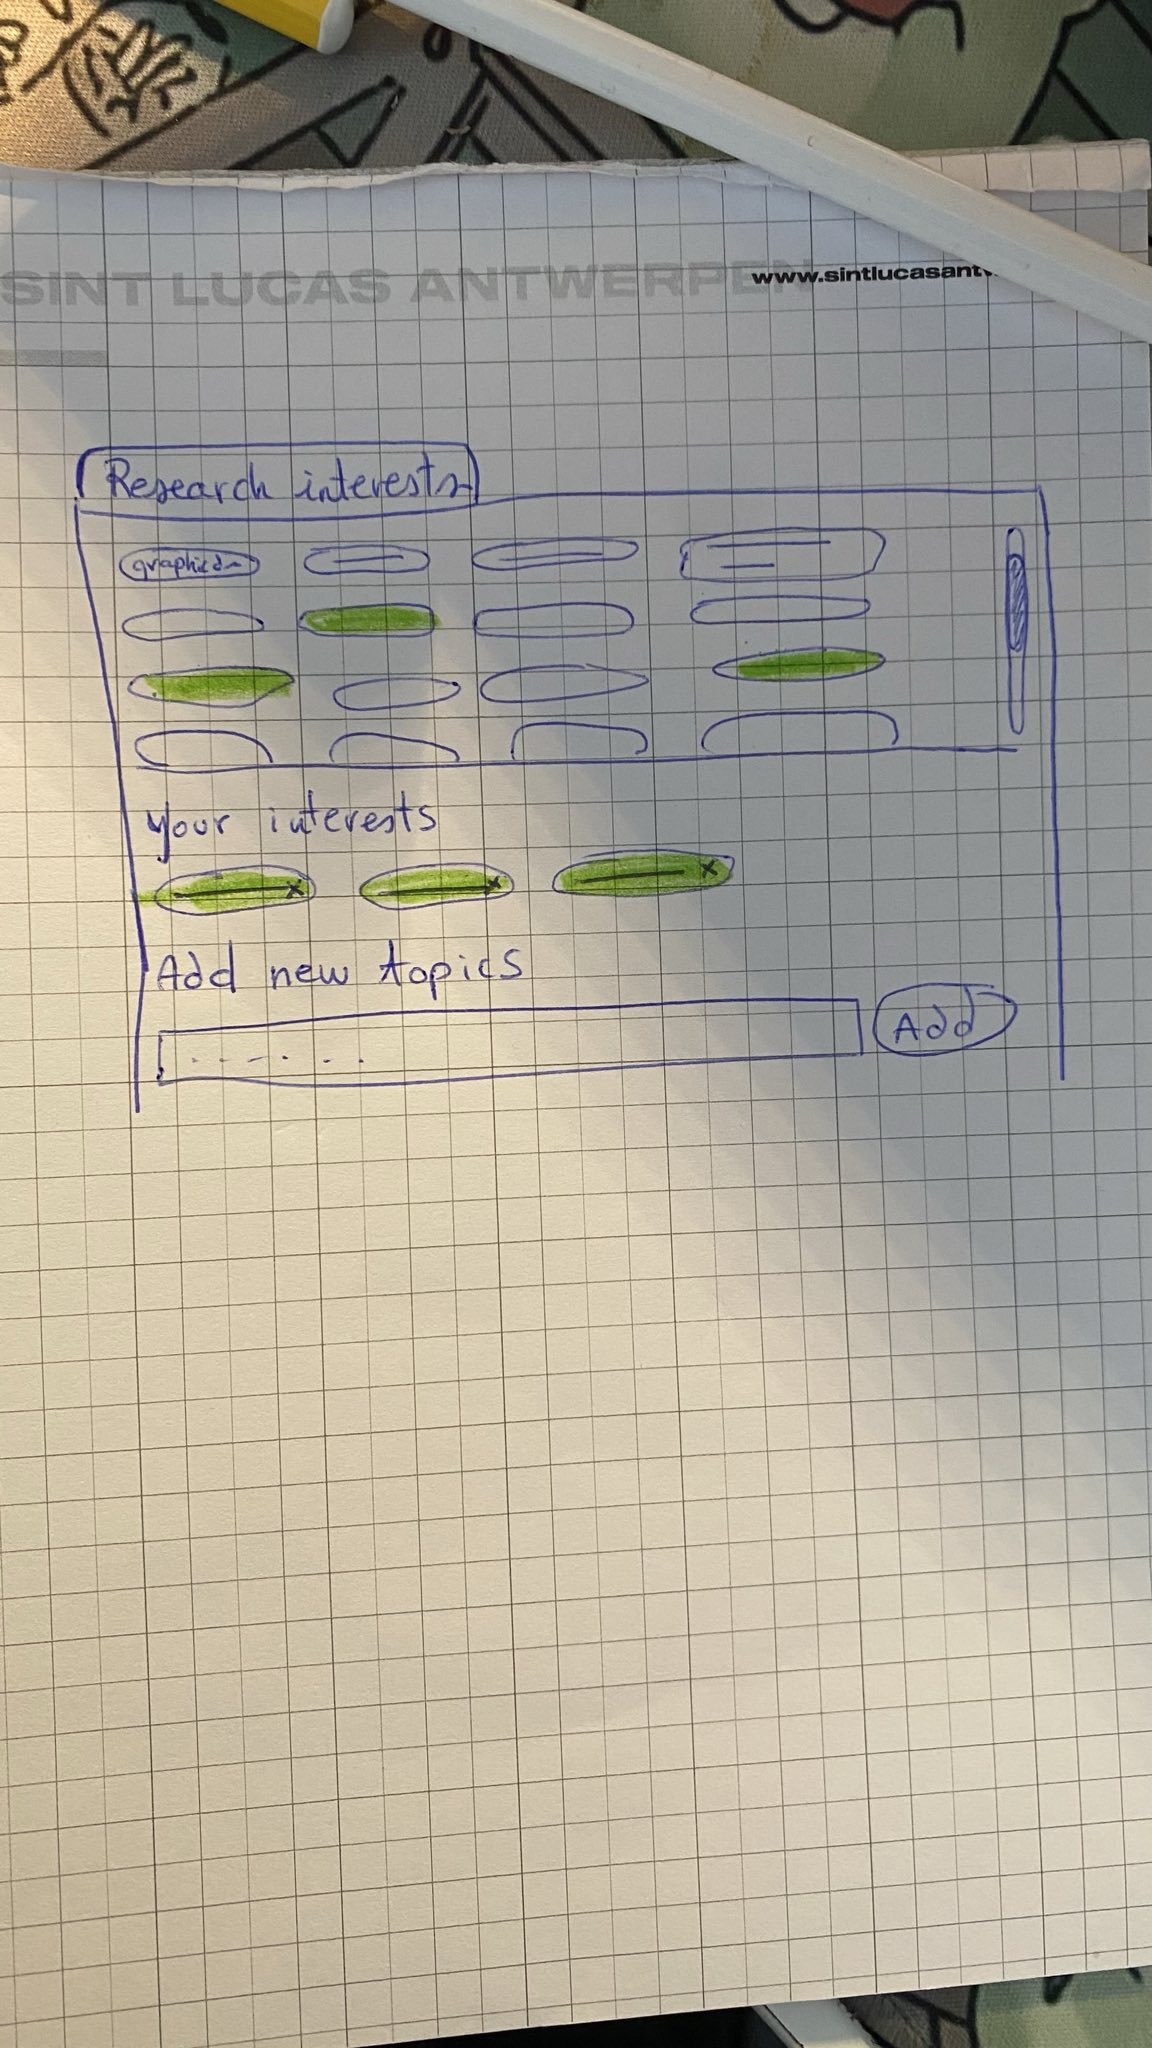 SINT LUCAS ANTWERPEN
www.sintlucasant
Research interests
your interests
x x x
Add new topics
Add